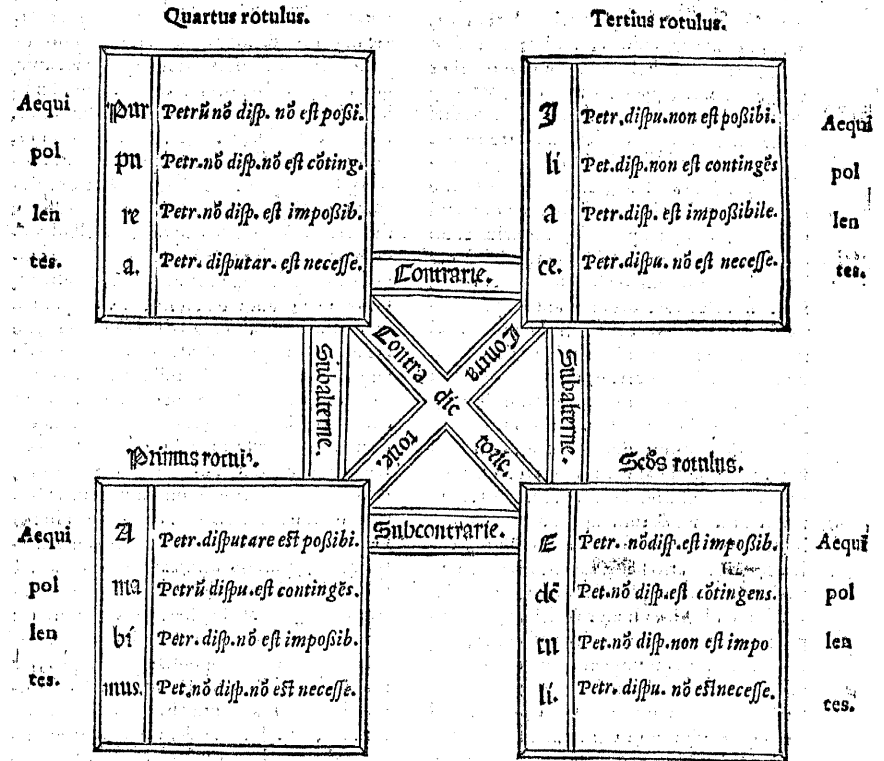 Quartus rotulus.
Aequi
pol
len
tes.
Pur Petrū nō disp. nō est poßi.
pu Petr. nō disp. nō est cōting.
re Petr. nō disp. est impoßib.
a. Petr. disputar. est necesse.
Tertius rotulus.
I Petr. dispu. non est poßibi.
li Pet. disp. non est contingēs
a Petr. disp. est impoßibile.
ce. Petr. dispu. nō est necesse.
Aequi
pol
len
tes.
Contrarie.
Subalterne.
Contra
dic
torie.
Contra
torie.
Subalterne.
Subcontrarie.
Primus rotul².
Aequi
pol
len
tes.
A Petr. disputare est poßibi.
ma Petrū dispu. est contingēs.
bi Petr. disp. nō est impoßib.
mus. Pet. nō disp. nō est necesse.
Scd̄s rotulus.
E Petr. nō disp. est impoßib.
dē Pet. nō disp. est cōtingens.
tu Pet. nō disp. non est impo
li. Petr. dispu. nō est necesse.
Aequi
pol
len
tes.